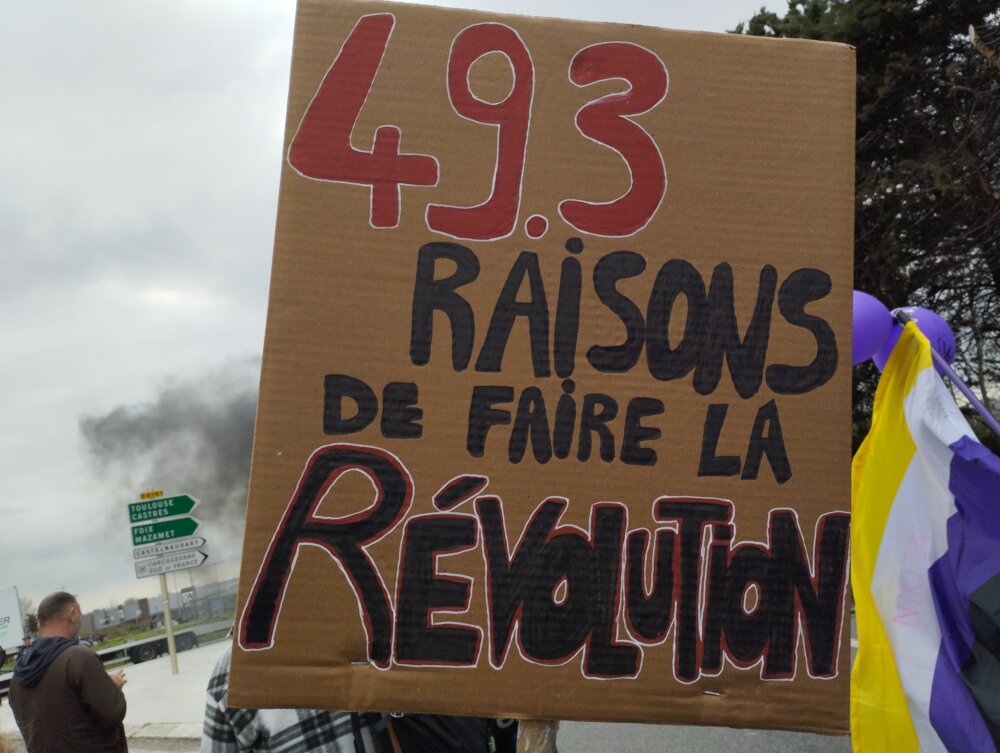 49.3
RAiSONS
DE FAiRE LA
RÉVOLUTiON
TOULOUSE
CASTRES
FOIX
MAZAMET
CASTELNAUDARY
CARCASSONNE
SUD DE FRANCE